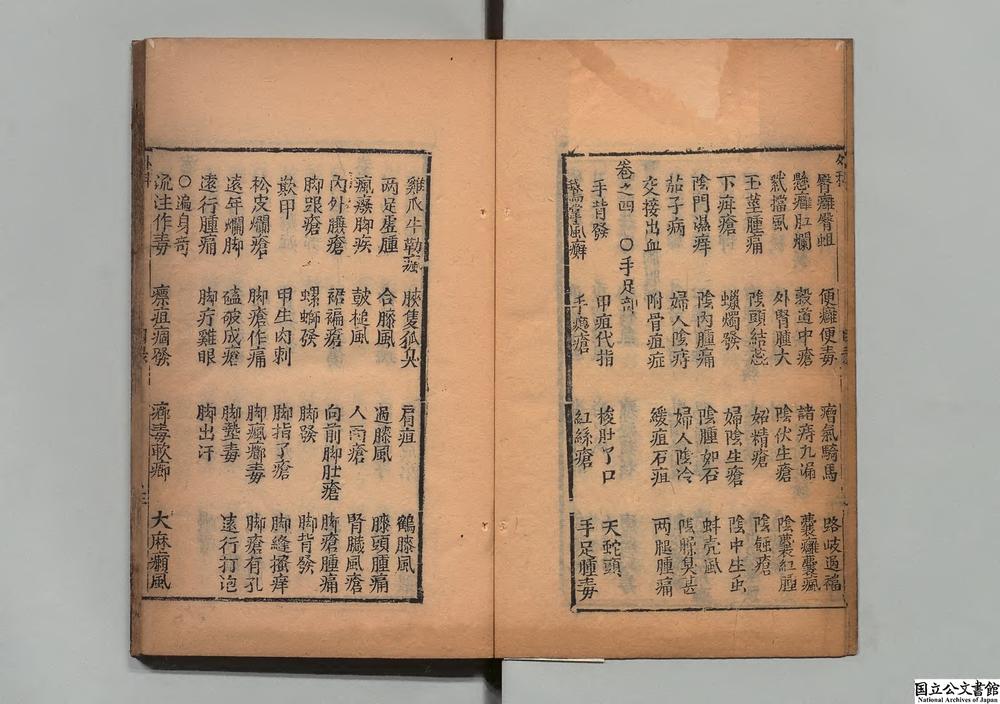 臀癰臀蛆 便癰便毒 疝氣騎馬 路岐過福
懸癰肛爛 穀道中瘡 諸痔九漏 囊癰囊瘋
外腎腫大 陰伏生瘡 陰囊紅腫
玉莖腫痛 陰頭結蕊 妬精瘡 陰蝕瘡
下疳瘡 蠟燭發 婦陰生瘡 陰中生虫
陰門濕痒 陰內腫痛 陰腫如石 蚌壳風
茄子病 婦人陰痔 婦人陰冷 陰臭甚
交接出血 附骨疽症 緩疽石疽 两腿腫痛
卷之四 〇手足部
手背發 甲疽代指 梭肚了口 天蛇頭
鵝掌風癬 手瘡 紅絲瘡 手足腫毒
雞爪牛勒 腴隻狐臭 肩疽 鶴膝風
两足虛腫 合膝風 過膝風 膝頭腫痛
瘋癢脚疾 鼓槌風 人面瘡 腎臟風瘡
內外臁瘡 裙褊瘡 向前脚肚瘡 脚瘡腫痛
脚跟瘡 螺螄發 脚發 脚背發
嵌甲 甲生肉刺 脚指了瘡 脚縫搔痒
松皮爛瘡 脚瘡作痛 脚瘋癤毒 脚瘡有孔
遠年爛脚 磕破成瘡 脚墊毒 遠行打泡
遠行腫痛 脚疔雞眼 脚出汗
〇遍身部
流注作毒 瘭疽痼發 癤毒軟癤 大麻癩風
国立公文書館
National Archives of Japan